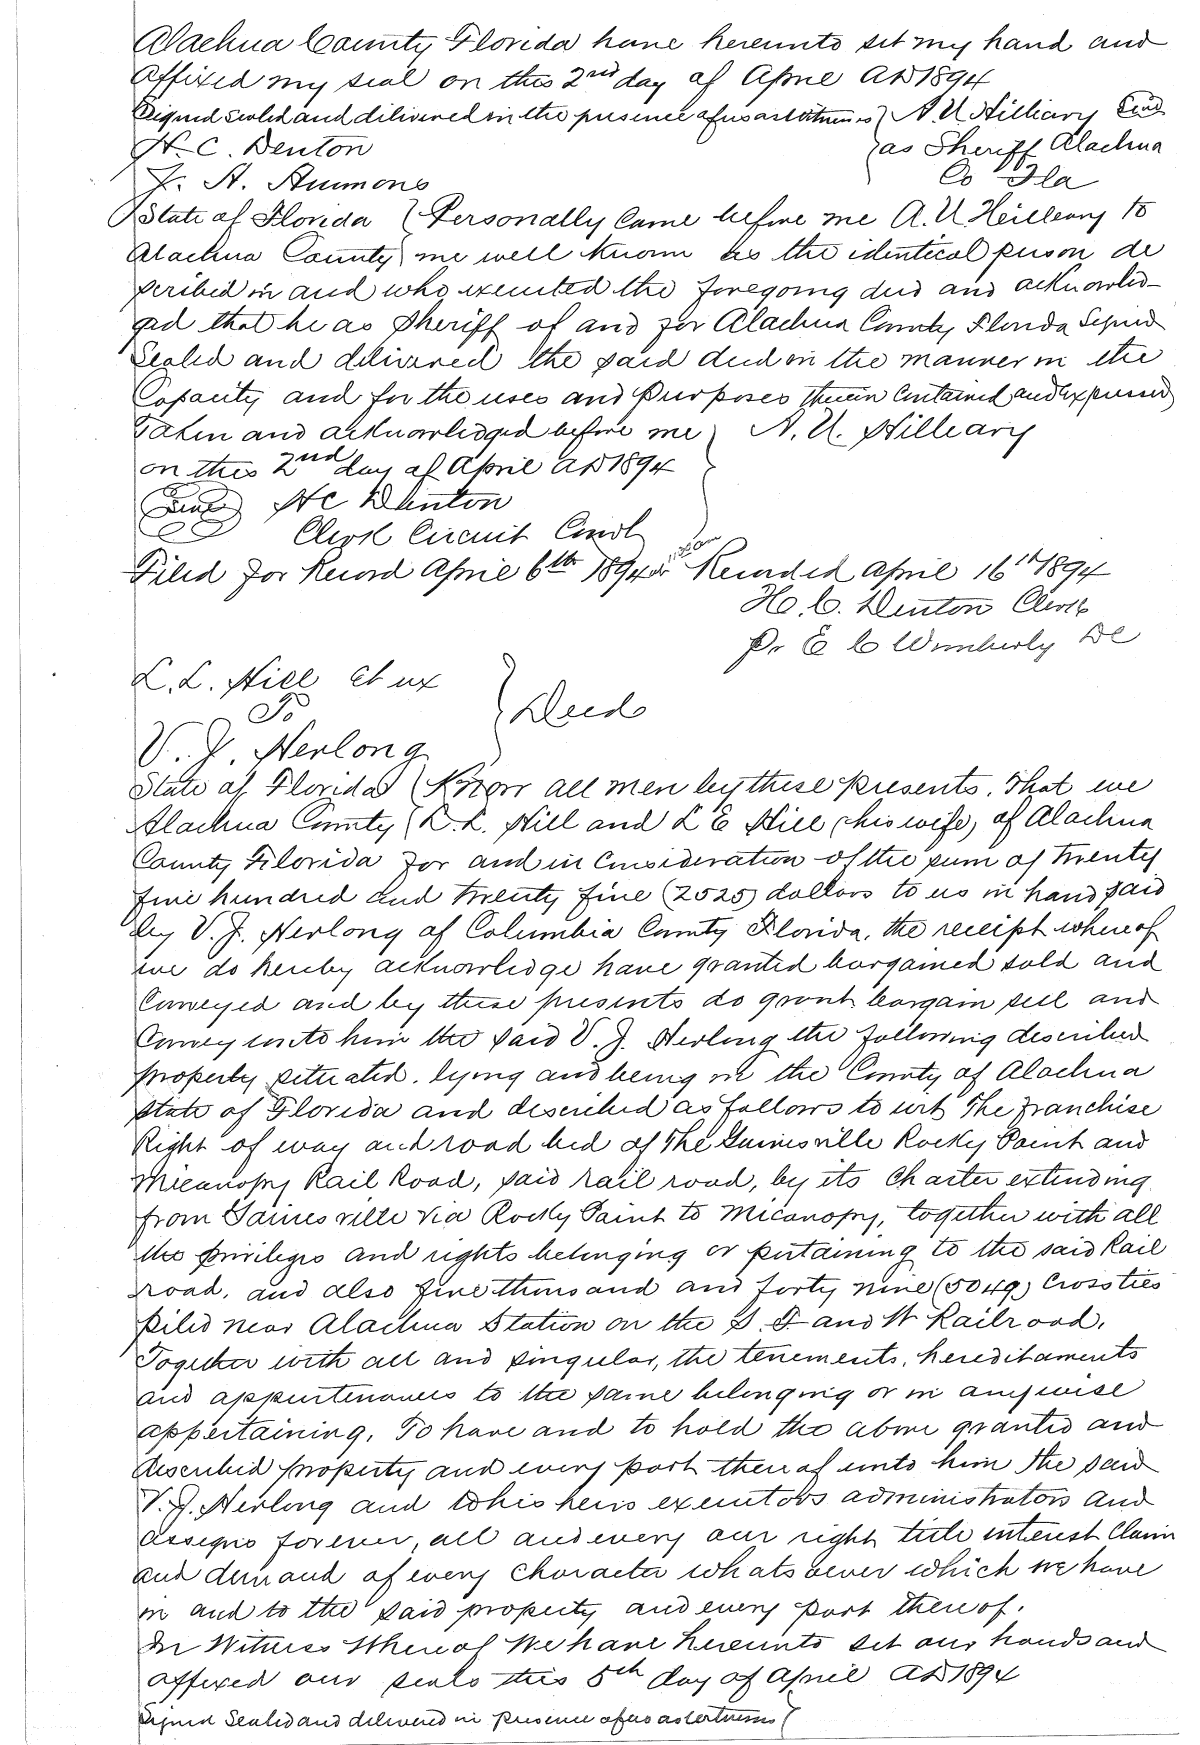 Alachua County Florida have hereunto set my hand and
affixed my seal on this 2nd day of April AD 1894
Signed sealed and delivered in the presence of us as witnesses } A. U. Hilleary Seal
H. C. Denton } as Sheriff Alachua
J. A. Ammons Co Fla
State of Florida { Personally came before me A. U. Hilleary to
Alachua County } me well known as the identical person de
scribed in and who executed the foregoing deed and acknowled-
ged that he as Sheriff of and for Alachua County Florida Signed
Sealed and delivered the said deed in the manner in the
Capacity and for the uses and purposes therein contained and expressed
Taken and acknowledged before me } A. U. Hilleary
on this 2nd day of April AD 1894
Seal H C Denton
Clerk Circuit Court
Filed for Record April 6th 1894 Recorded April 16th 1894
H. C. Denton Clerk
Pr E C Wimberly DC
L. L. Hill et ux
To } Deed
V. J. Herlong
State of Florida { Know all men by these presents. That we
Alachua County { L. L. Hill and L E Hill (his wife) of Alachua
County Florida for and in Consideration of the sum of twenty
five hundred and twenty five (2525) dollars to us in hand paid
by V. J. Herlong of Columbia County Florida, the receipt whereof
we do hereby acknowledge have granted bargained sold and
Conveyed and by these presents do grant bargain sell and
Convey unto him the said V. J. Herlong the following described
property situated. lying and being in the County of Alachua
State of Florida and described as follows to wit The franchise
Right of way and road bed of The Gainesville Rocky Point and
Micanopy Rail Road, said rail road, by its Charter extending
from Gainesville via Rocky Point to Micanopy, together with all
the privileges and rights belonging or pertaining to the said Rail
road, and also five thousand and forty nine (5049) Cross ties
piled near Alachua Station on the S. F and W Railroad.
Together with all and singular, the tenements, hereditaments
and appurtenances to the same belonging or in anywise
appertaining, To have and to hold the above granted and
described property and every part thereof unto him the said
V. J. Herlong and to his heirs executors administrators and
assigns forever, all and every our right title interest Claim
and demand of every Character whatsoever which we have
in and to the said property and every part thereof.
In Witness Whereof We have hereunto set our hands and
affixed our seals this 5th day of April AD 1894
Signed Sealed and delivered in presence of us as witnesses {